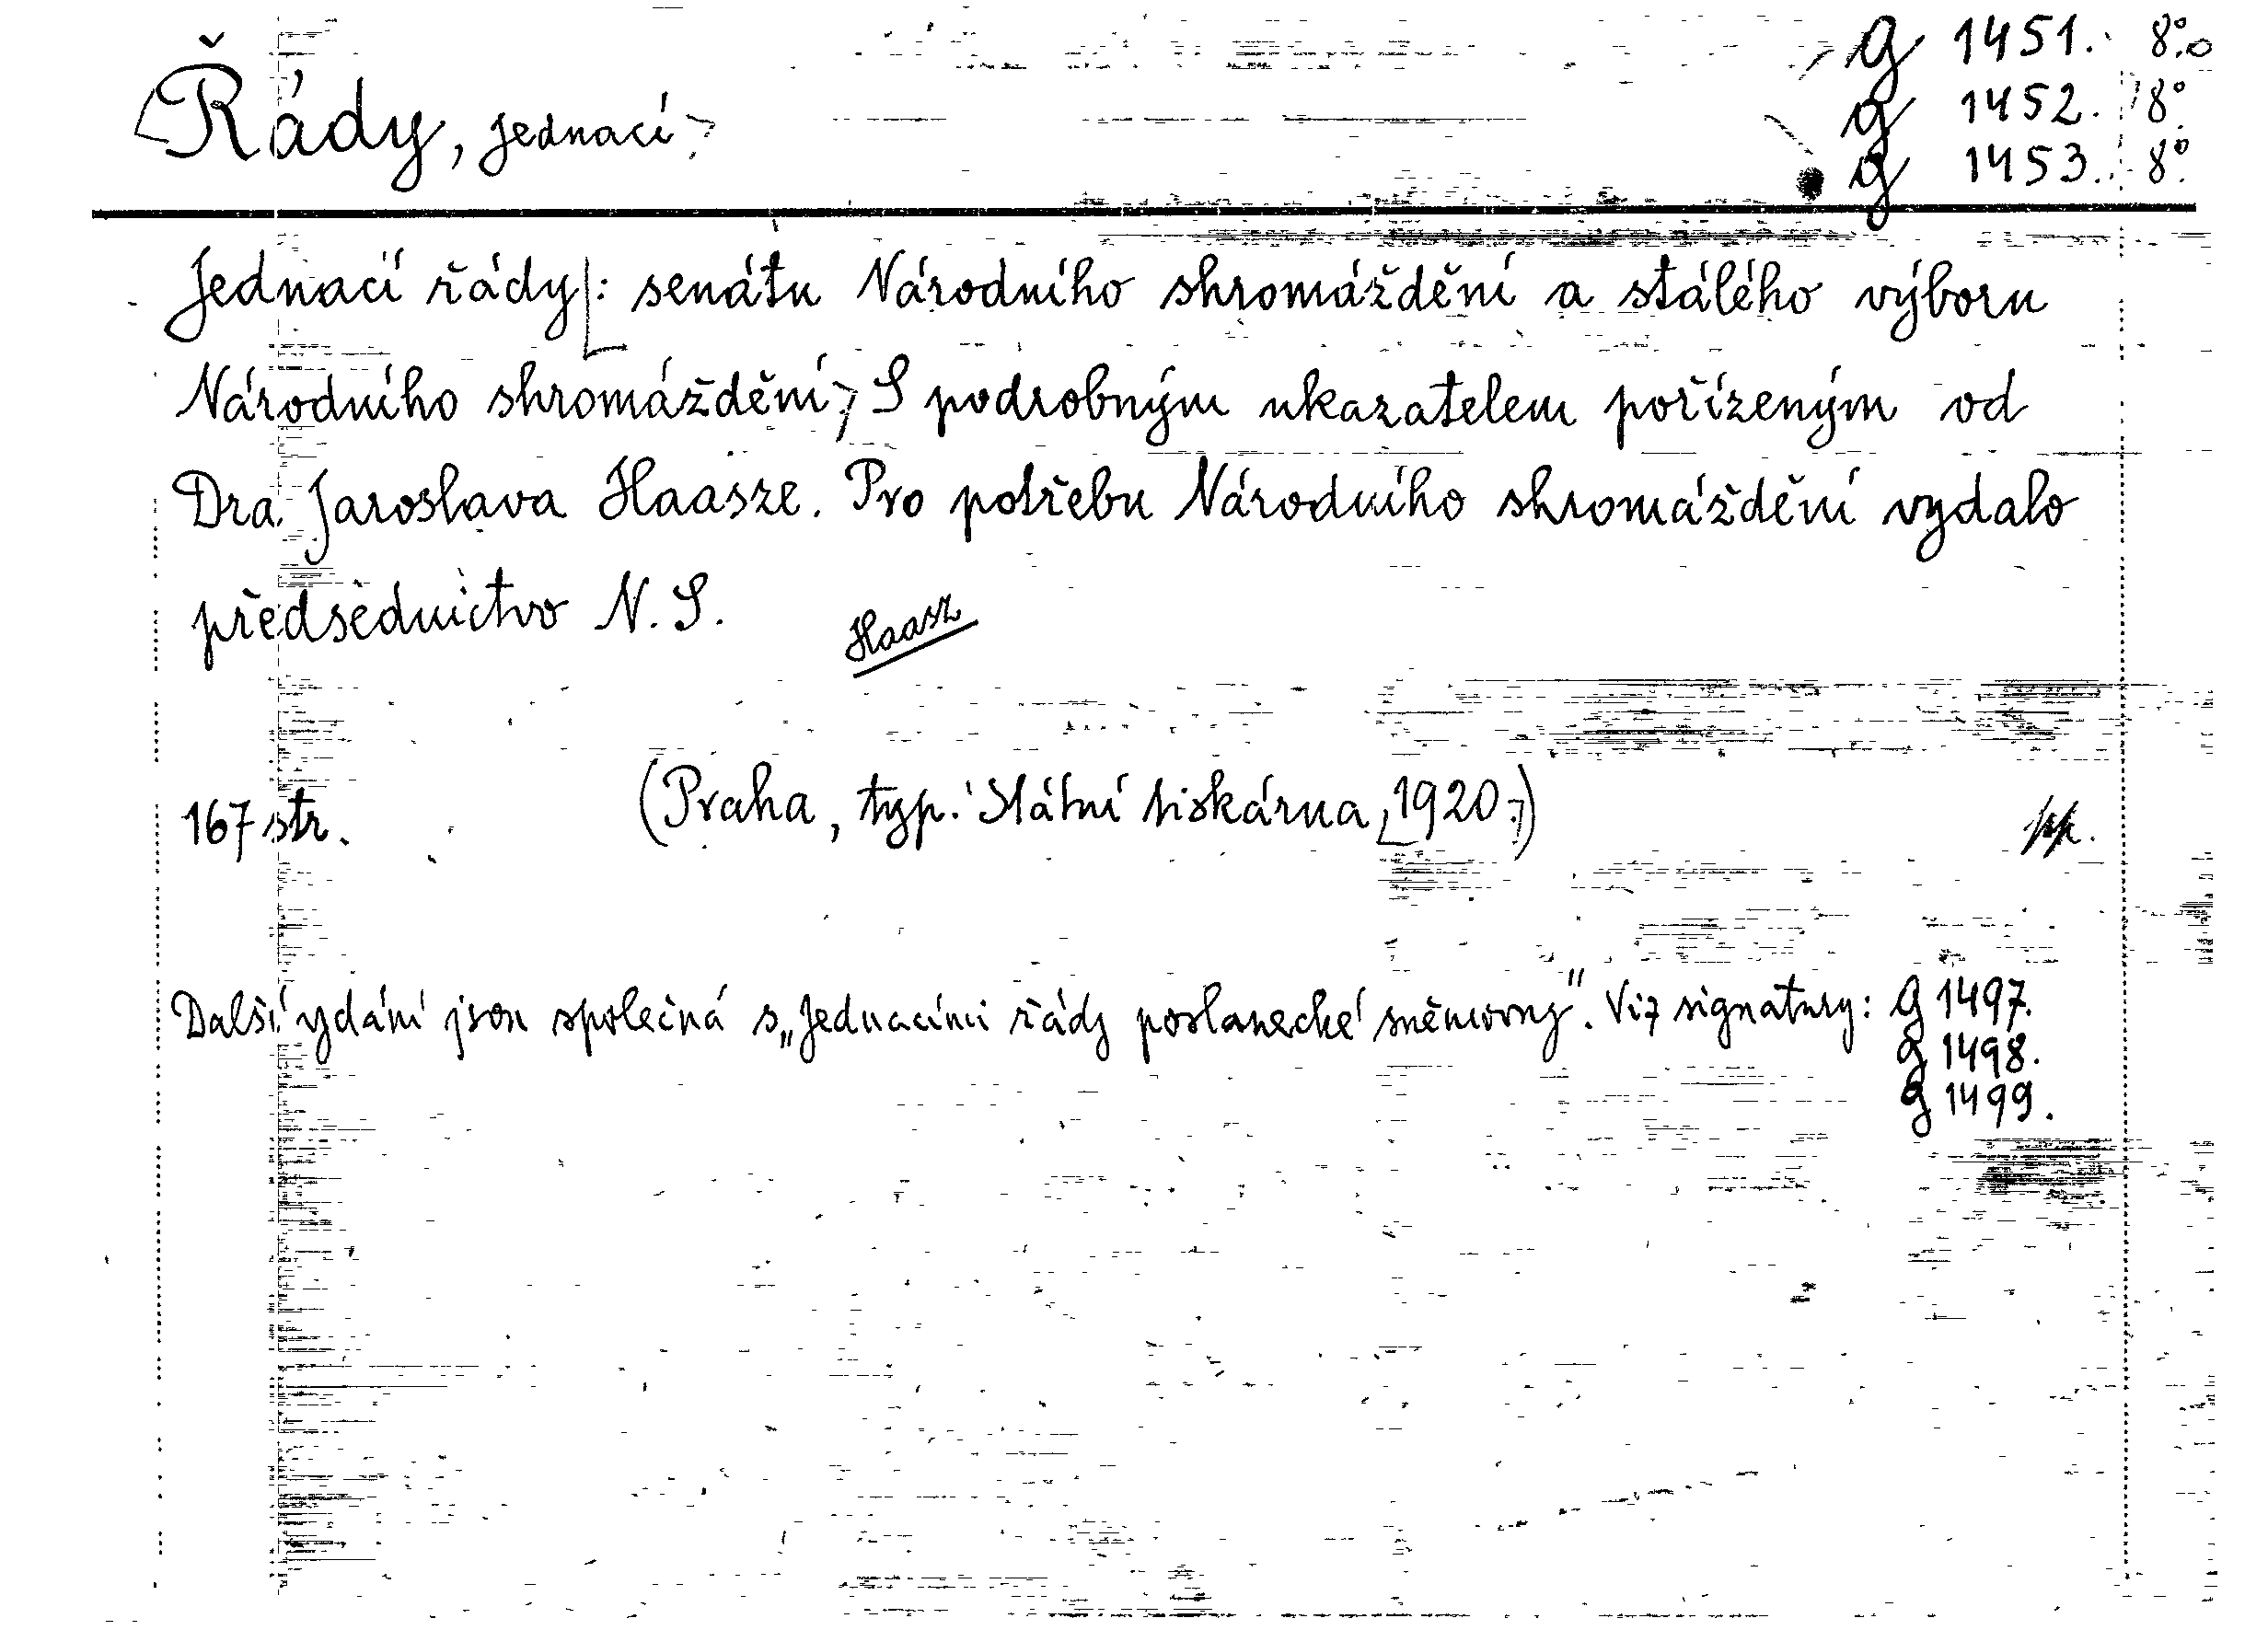 [Řády, jednací]
g 1451. 8°.
g 1452. 8°.
g 1453. 8°.
Jednací řády[: senátu Národního shromáždění a stálého výboru
Národního shromáždění;] S podrobným ukazatelem pořízeným od
Dra Jaroslava Haasze. Pro potřebu Národního shromáždění vydalo
předsednictvo N. S.
Haasz
167 str. (Praha, typ. Státní tiskárna, [1920.])
Další vydání jsou společná s „Jednacími řády poslanecké sněmovny". Viz signatury: g 1497.
g 1498.
g 1499.